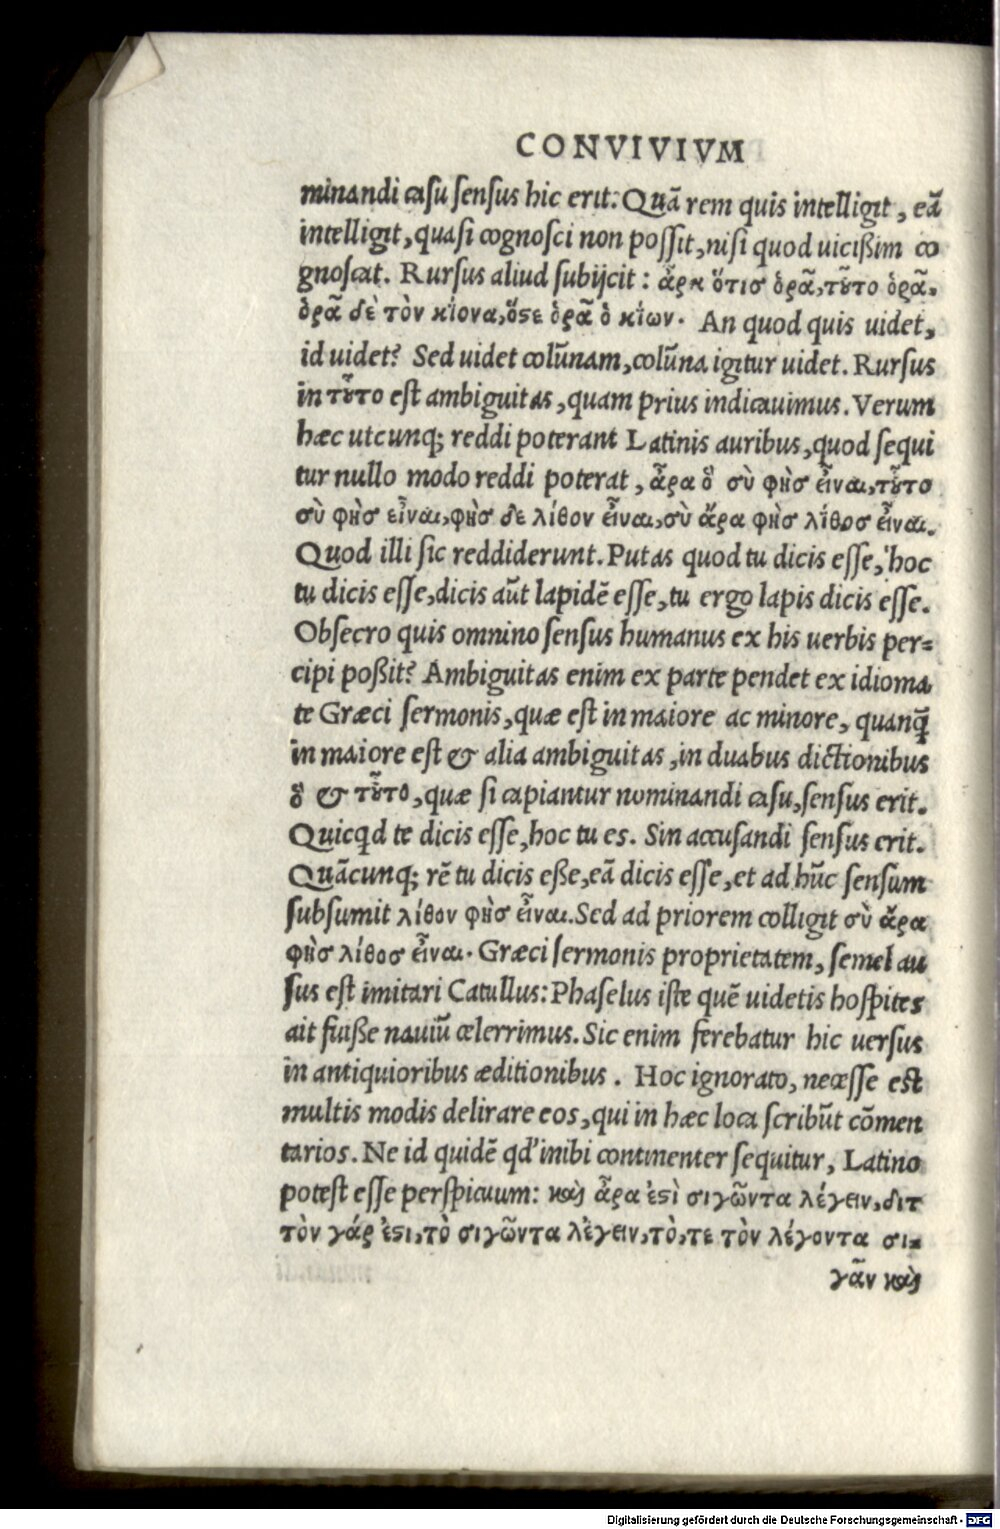 CONVIVIVM
minandi casu sensus hic erit: Quã rem quis intelligit, eã
intelligit, quasi cognosci non possit, nisi quod uicißim co
gnoscat. Rursus aliud subijcit: ἆρα ὅτισ ὁρᾶ, τοῦτο ὁρᾶ,
ὁρᾶ δὲ τὸν κίονα, ὥστε ὁρᾶ ὁ κίων. An quod quis uidet,
id uidet? Sed uidet colũnam, colũna igitur uidet. Rursus
in τοῦτο est ambiguitas, quam prius indicauimus. Verum
hæc utcunq; reddi poterant Latinis auribus, quod sequi
tur nullo modo reddi poterat, ἆρα ὃ σὺ φῂσ εἶναι, τοῦτο
σὺ φῂσ εἶναι, φῂσ δε λίθον εἶναι, σὺ ἄρα φῂσ λίθοσ εἶναι.
Quod illi sic reddiderunt. Putas quod tu dicis esse, hoc
tu dicis esse, dicis aũt lapidẽ esse, tu ergo lapis dicis esse.
Obsecro quis omnino sensus humanus ex his uerbis per=
cipi poßit? Ambiguitas enim ex parte pendet ex idioma
te Græci sermonis, quæ est in maiore ac minore, quanq̃
in maiore est & alia ambiguitas, in duabus dictionibus
ὃ & τοῦτο, quæ si capiantur nominandi casu, sensus erit.
Quicqd te dicis esse, hoc tu es. Sin accusandi sensus erit.
Quãcunq; rẽ tu dicis eße, eã dicis esse, et ad hũc sensum
subsumit λίθον φῂσ εἶναι. Sed ad priorem colligit σὺ ἄρα
φῂσ λίθοσ εἶναι. Græci sermonis proprietatem, semel au
sus est imitari Catullus: Phaselus iste quẽ uidetis hospites
ait fuiße nauiũ celerrimus. Sic enim ferebatur hic uersus
in antiquioribus æditionibus. Hoc ignorato, necesse est
multis modis delirare eos, qui in hæc loca scribũt cõmen
tarios. Ne id quidẽ qd' inibi continenter sequitur, Latino
potest esse perspicuum: καὶ ἆρα ἐστὶ σιγῶντα λέγειν, διτ
τὸν γάρ ἐστι, τὸ σιγῶντα λέγειν, τὸ, τε τὸν λέγοντα σι=
γᾶν καὶ
Digitalisierung gefördert durch die Deutsche Forschungsgemeinschaft - DFG